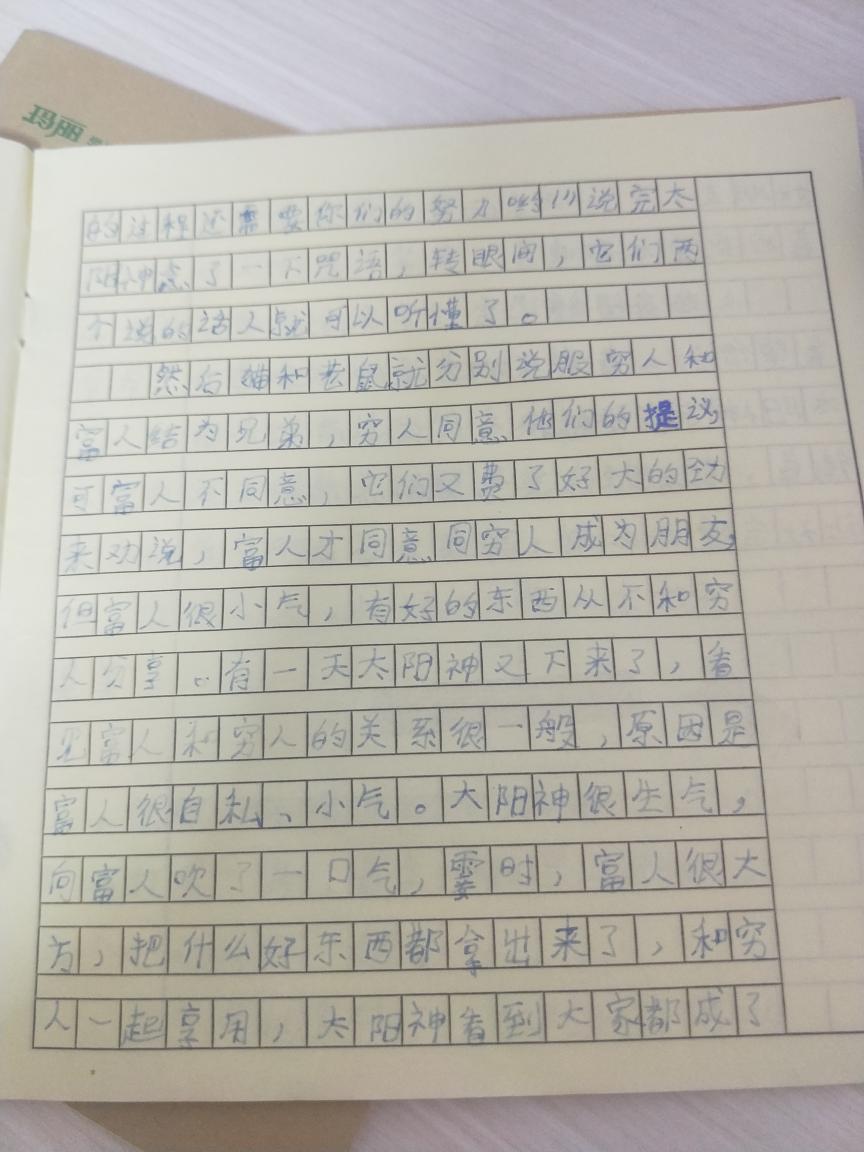 玛丽
的过程还需要你们的努力哟！”说完太
阳神点了一下咒语，转眼间，它们两
个说的话人就可以听懂了。
然后猫和老鼠就分别说服穷人和
富人结为兄弟，穷人同意他们的提议，
可富人不同意，它们又费了好大的劲
来劝说，富人才同意同穷人成为朋友，
但富人很小气，有好的东西从不和穷
人分享。有一天太阳神又下来了，看
见富人和穷人的关系很一般，原因是
富人很自私、小气。大阳神很生气，
向富人吹了一口气，霎时，富人很大
方，把什么好东西都拿出来了，和穷
人一起享用，太阳神看到大家都成了